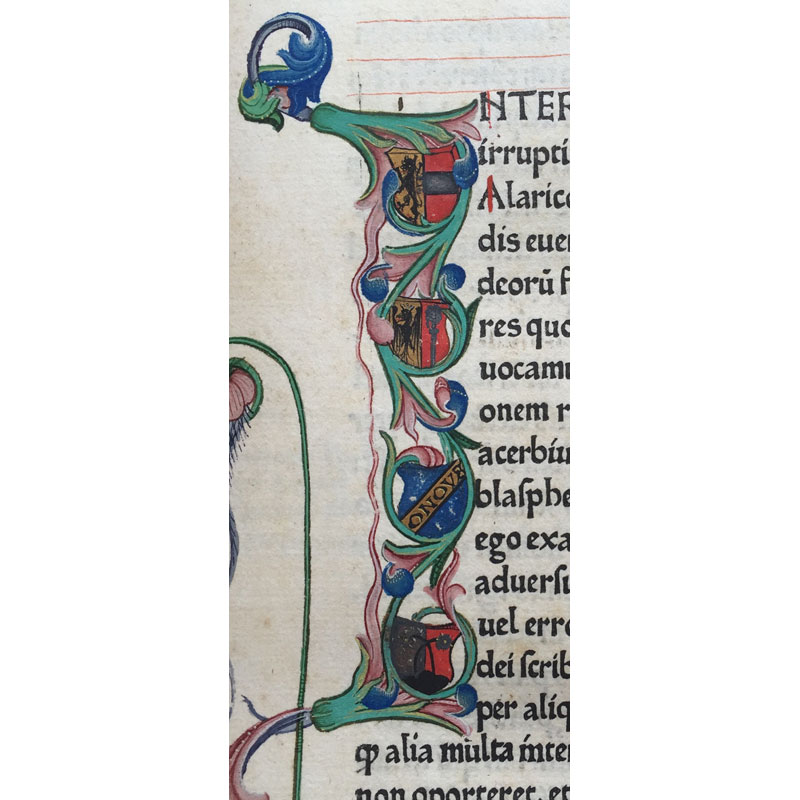 INTER
irrupti
Alarico
dis euer
deorū f
res quo
uocamu
onem r
acerbiu
ONOVE
blasphe
ego exa
aduersu
uel erro
dei scrib
per aliq
ꝙ alia multa inter
non oporteret, et